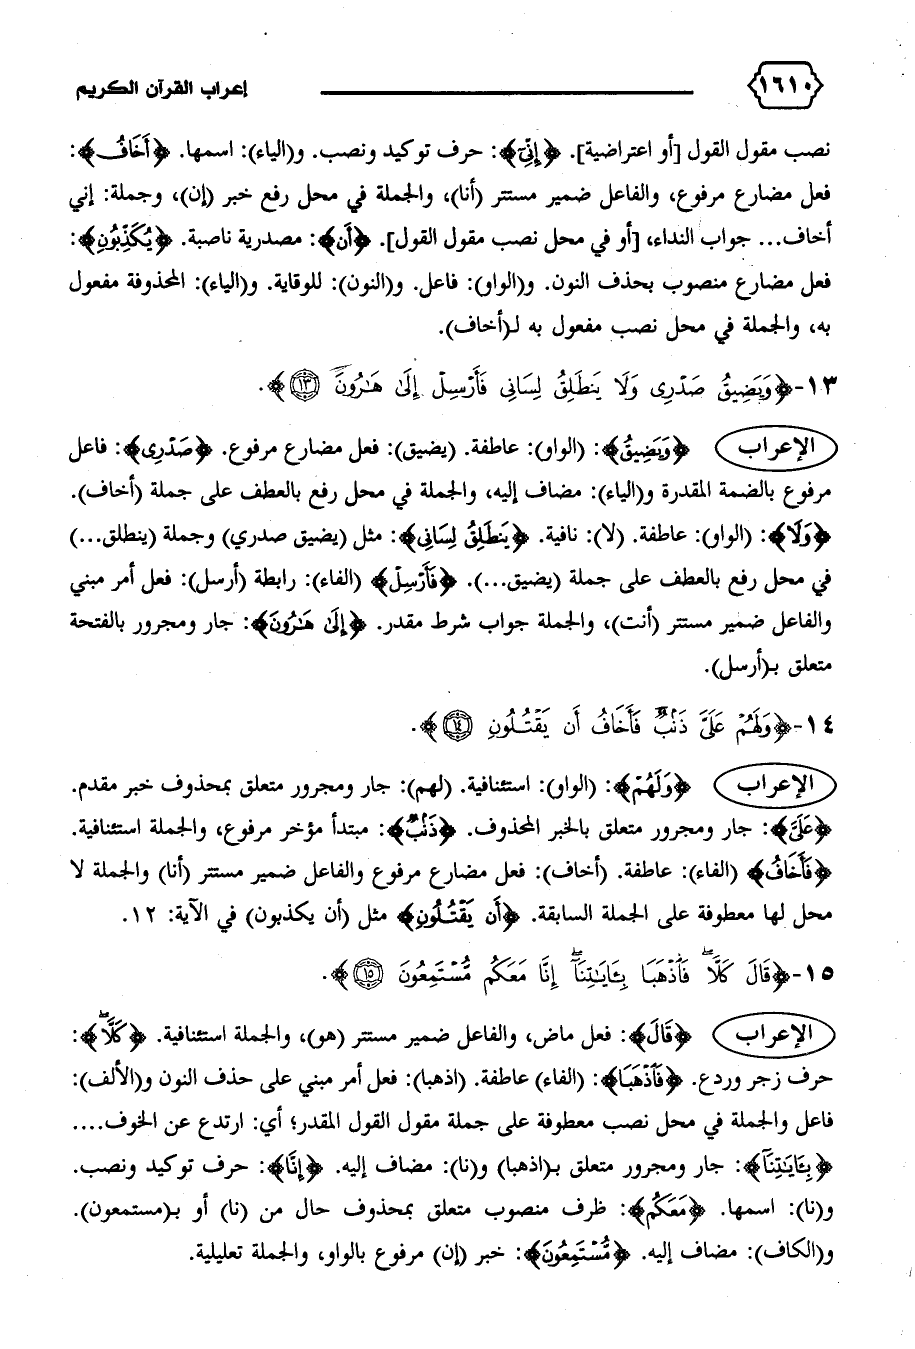 ١٦١٠
إعراب القرآن الكريم
نصب مقول القول [أو اعتراضية]. ﴿إِنِّيٓ﴾: حرف توكيد ونصب. و(الياء): اسمها. ﴿أَخَافُ﴾:
فعل مضارع مرفوع، والفاعل ضمير مستتر (أنا)، والجملة في محل رفع خبر (إن)، وجملة: إني
أخاف... جواب النداء، [أو في محل نصب مقول القول]. ﴿أَن﴾: مصدرية ناصبة. ﴿يُكَذِّبُونِ﴾:
فعل مضارع منصوب بحذف النون. و(الواو): فاعل. و(النون): للوقاية. و(الياء): المحذوفة مفعول
به، والجملة في محل نصب مفعول به لـ(أخاف).
١٣-﴿وَيَضِيقُ صَدْرِى وَلَا يَنطَلِقُ لِسَانِى فَأَرْسِلْ إِلَىٰ هَـٰرُونَ ١٣﴾.
الإعراب ﴿وَيَضِيقُ﴾: (الواو): عاطفة. (يضيق): فعل مضارع مرفوع. ﴿صَدْرِى﴾: فاعل
مرفوع بالضمة المقدرة و(الياء): مضاف إليه، والجملة في محل رفع بالعطف على جملة (أخاف).
﴿وَلَا﴾: (الواو): عاطفة. (لا): نافية. ﴿يَنطَلِقُ لِسَانِى﴾: مثل (يضيق صدري) وجملة (ينطلق...)
في محل رفع بالعطف على جملة (يضيق...). ﴿فَأَرْسِلْ﴾ (الفاء): رابطة (أرسل): فعل أمر مبني
والفاعل ضمير مستتر (أنت)، والجملة جواب شرط مقدر. ﴿إِلَىٰ هَـٰرُونَ﴾: جار ومجرور بالفتحة
متعلق بـ(أرسل).
١٤-﴿وَلَهُمْ عَلَىَّ ذَنۢبٌ فَأَخَافُ أَن يَقْتُلُونِ ١٤﴾.
الإعراب ﴿وَلَهُمْ﴾: (الواو): استئنافية. (لهم): جار ومجرور متعلق بمحذوف خبر مقدم.
﴿عَلَىَّ﴾: جار ومجرور متعلق بالخبر المحذوف. ﴿ذَنۢبٌ﴾: مبتدأ مؤخر مرفوع، والجملة استئنافية.
﴿فَأَخَافُ﴾ (الفاء): عاطفة. (أخاف): فعل مضارع مرفوع والفاعل ضمير مستتر (أنا) والجملة لا
محل لها معطوفة على الجملة السابقة. ﴿أَن يَقْتُلُونِ﴾ مثل (أن يكذبون) في الآية: ١٢.
١٥-﴿قَالَ كَلَّا ۖ فَٱذْهَبَا بِـَٔايَـٰتِنَآ ۖ إِنَّا مَعَكُم مُّسْتَمِعُونَ ١٥﴾.
الإعراب ﴿قَالَ﴾: فعل ماض، والفاعل ضمير مستتر (هو)، والجملة استئنافية. ﴿كَلَّا ۖ﴾:
حرف زجر وردع. ﴿فَٱذْهَبَا﴾: (الفاء) عاطفة. (اذهبا): فعل أمر مبني على حذف النون و(الألف):
فاعل والجملة في محل نصب معطوفة على جملة مقول القول المقدر؛ أي: ارتدع عن الخوف....
﴿بِـَٔايَـٰتِنَآ﴾: جار ومجرور متعلق بـ(اذهبا) و(نا): مضاف إليه. ﴿إِنَّا﴾: حرف توكيد ونصب.
و(نا): اسمها. ﴿مَعَكُم﴾: ظرف منصوب متعلق بمحذوف حال من (نا) أو بـ(مستمعون).
و(الكاف): مضاف إليه. ﴿مُّسْتَمِعُونَ﴾: خبر (إن) مرفوع بالواو، والجملة تعليلية.